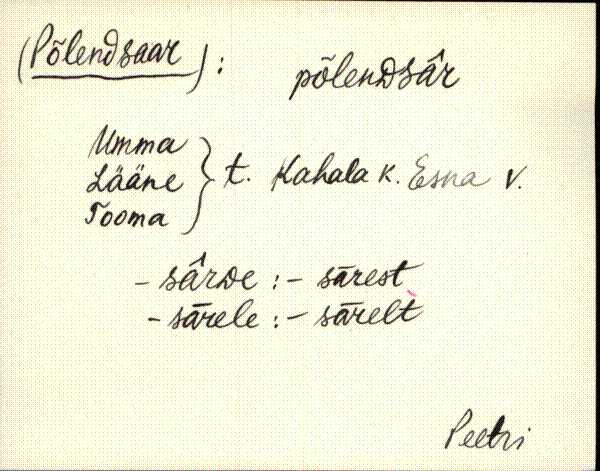 (Põlendsaar): põlendsâr
Umma
Lääne } t. Kahala k. Esna v.
Tooma
- sârde : - sārest
- sārele : - sārelt
Peetri